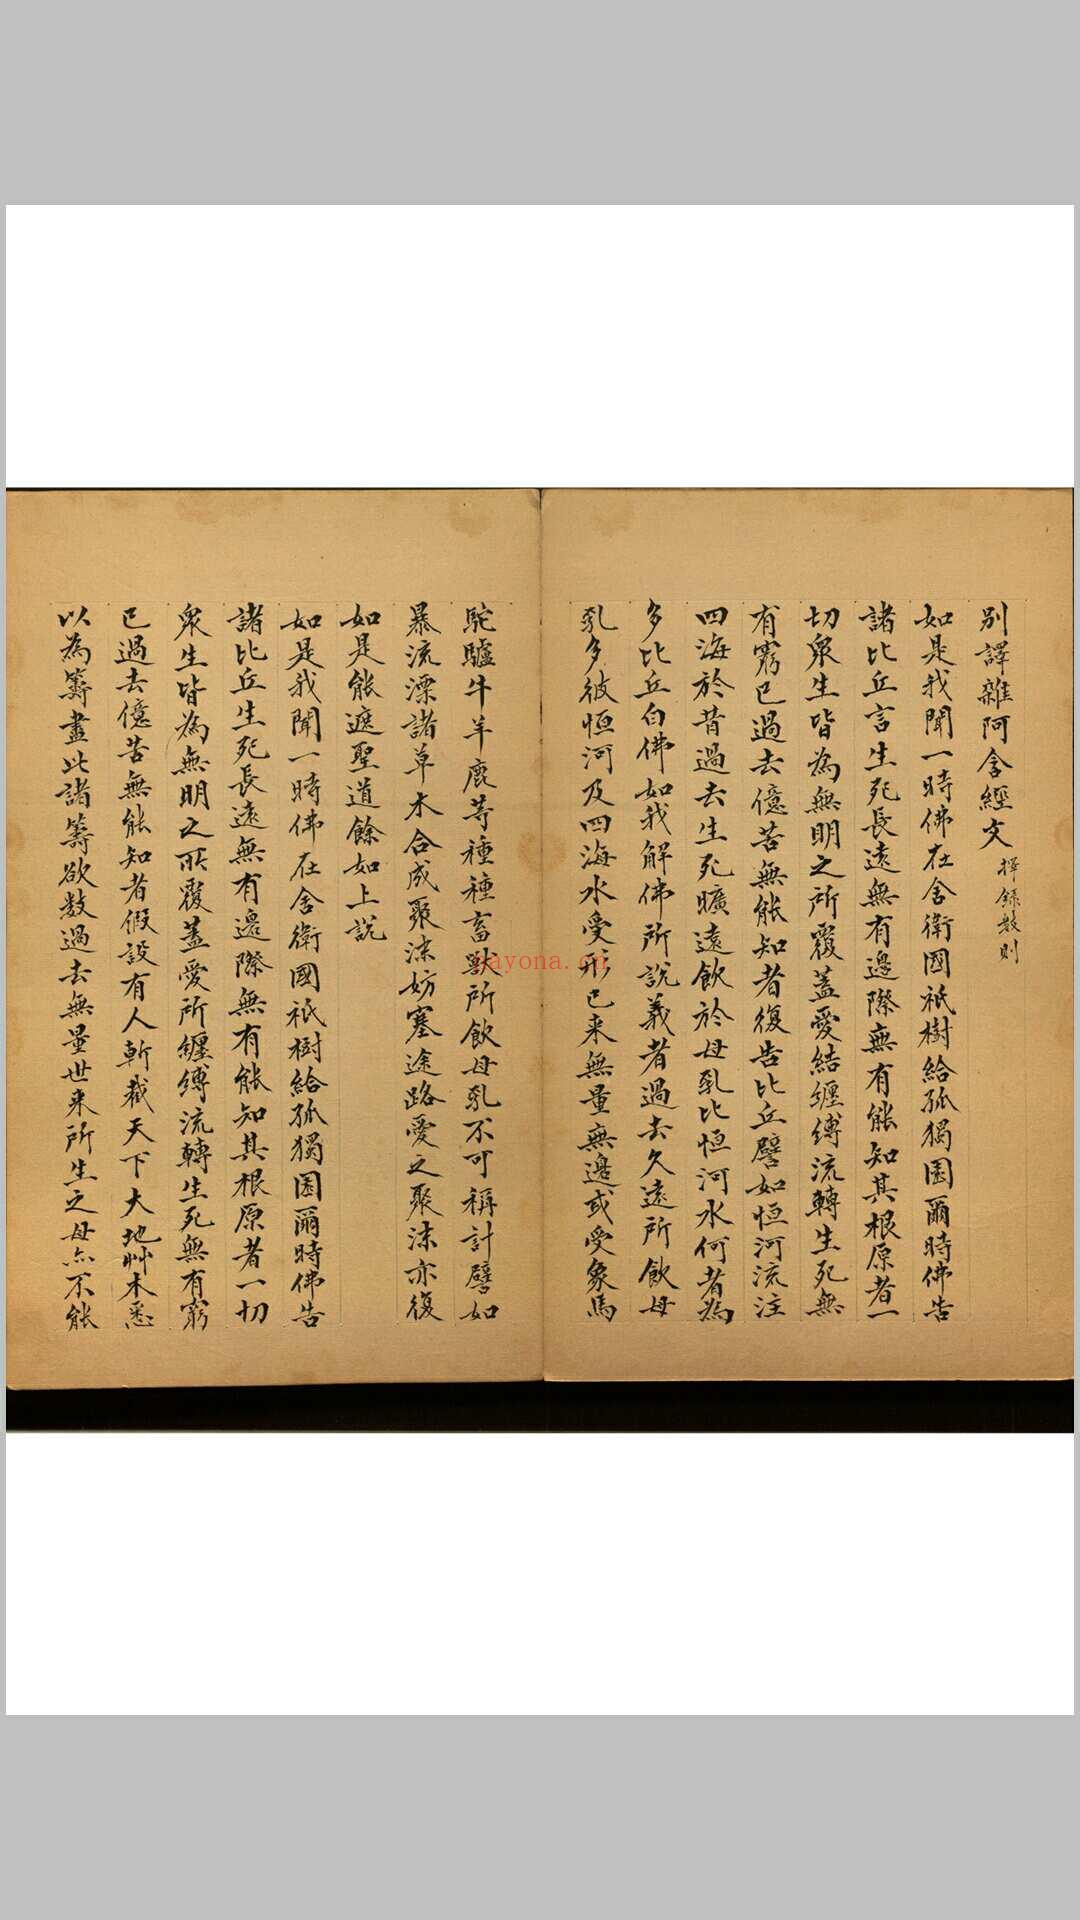 別譯雜阿含經文 擇錄數則
如是我聞一時佛在舍衛國祇樹給孤獨園爾時佛告
諸比丘言生死長遠無有邊際無有能知其根原者一
切眾生皆為無明之所覆蓋愛結纏縛流轉生死無
有窮已過去億苦無能知者復告比丘譬如恒河流注
四海於昔過去生死曠遠飲於母乳比恒河水何者為
多比丘白佛如我解佛所說義者過去久遠所飲母
乳多彼恒河及四海水受形已来無量無邊或受象馬
駝驢牛羊鹿等種種畜獸所飲母乳不可稱計譬如
暴流漂諸草木合成聚沫妨塞途路愛之聚沫亦復
如是能遮聖道餘如上說
如是我聞一時佛在舍衛國祇樹給孤獨園爾時佛告
諸比丘生死長遠無有邊際無有能知其根原者一切
眾生皆為無明之所覆蓋愛所纏縛流轉生死無有窮
已過去億苦無能知者假設有人斬截天下大地艸木悉
以為籌盡此諸籌欲数過去無量世来所生之母亦不能
nayona.cn